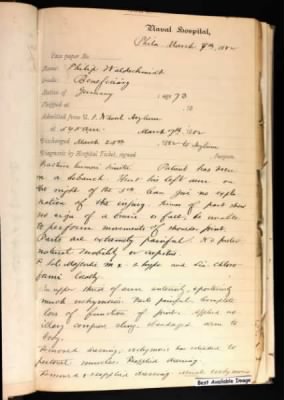 Naval Hospital,
Phila March 7th, 1882
Case paper No.
Name: Philip Waldschmidt
Grade: Beneficiary
Native of Germany ; age 73
Shipped at ; 18
Admitted from U.S. Naval Asylum
at 5.45 P.M. March 7th, 1882
Discharged March 25th 1882 to Asylum
Diagnosis by Hospital Ticket, signed Surgeon.
Patient has been
on a debauch. Hurt his left arm on
the night of the 5th can give no expla
nation of the injury. of part show
no sign of a bruise or fall; is unable
to perform movements of shoulder joint.
Parts are extremely painful. No preter
natural mobility or crepitus.
upper third of arm anteriorly,
much ecchymosis. Parts painful, complete
loss of function of joint. Applied an
bandaged arm to
body.
Removed dressing, ecchymosis has extended to
pectoral muscles. Reapplied dressing.
Removed & reapplied dressing much ecchymosis
Best Available Image